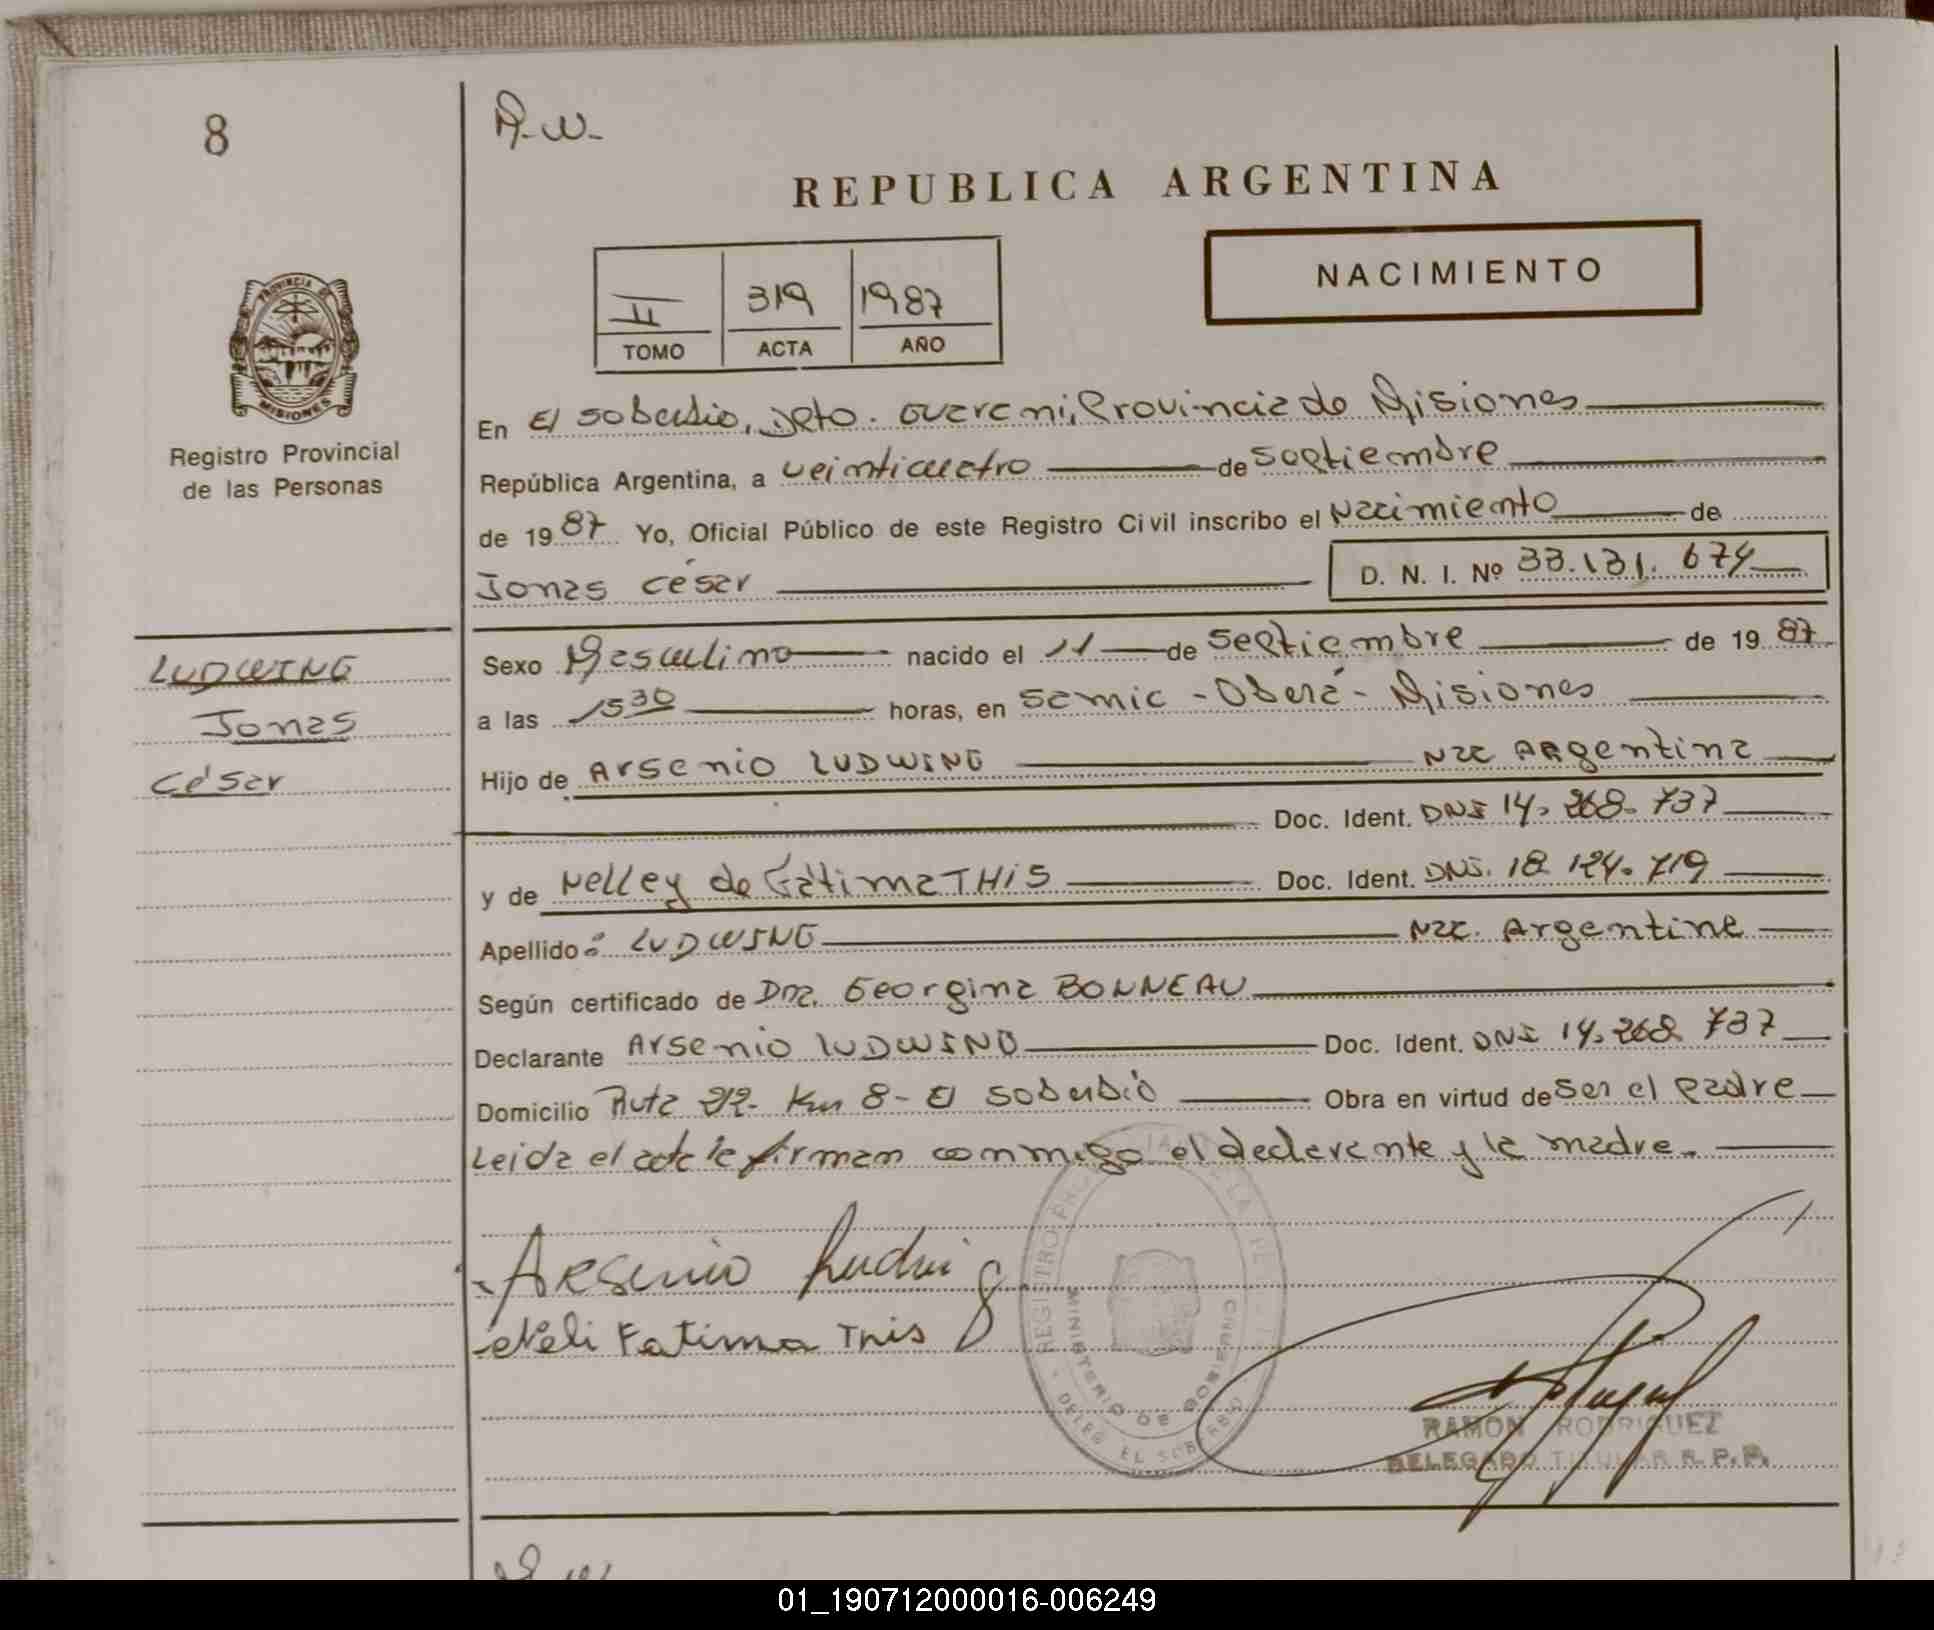 8
A.W.
REPUBLICA ARGENTINA
II 319 1987
TOMO ACTA AÑO
NACIMIENTO
PROVINCIA DE
MISIONES
Registro Provincial
de las Personas
En El Soberbio, Dpto. Guarani, Provincia de Misiones
República Argentina, a veinticuatro de Septiembre
de 1987 Yo, Oficial Público de este Registro Civil inscribo el Nacimiento de
Jonas César D. N. I. Nº 33.131.674
LUDWING
Jonas
César
Sexo Masculino nacido el 11 de Septiembre de 1987
a las 15 30 horas, en Samic - Oberá - Misiones
Hijo de Arsenio LUDWING Nac Argentina
Doc. Ident. DNI 14.268.737
y de Nelley de Fátima THIS Doc. Ident. DNI. 18.124.719
Apellido: LUDWING Nac. Argentina
Según certificado de Dra. Georgina BONNEAU
Declarante Arsenio LUDWING Doc. Ident. DNI 14.268.737
Domicilio Ruta 212 Km 8 - El Soberbio Obra en virtud de ser el padre
Leida el acta la firman conmigo el declarante y la madre.
Arsenio Ludwig
Neli Fatima This
REGISTRO PROVINCIAL DE LAS PERSONAS
MINISTERIO DE GOBIERNO
DELEG EL SOBERBIO
RAMON RODRIGUEZ
DELEGADO TITULAR R.P.P.
01_190712000016-006249